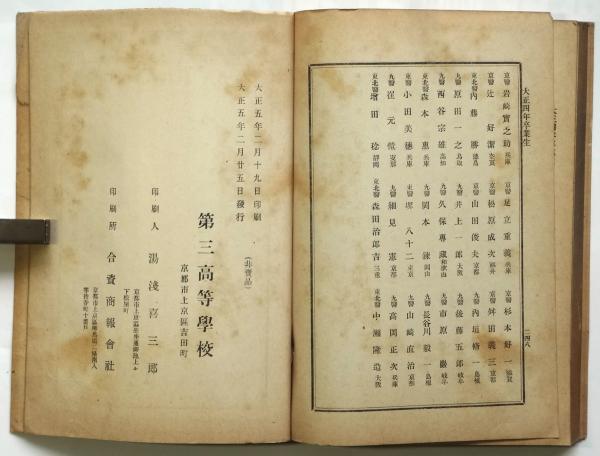 大正四年卒業生
二四八
京醫 岩崎寶之助 兵庫
京醫 足立重義 兵庫
京醫 杉本好一 滋賀
京醫 辻好潔 滋賀
京醫 松原成次 福井
京醫 舛田義三 京都
東北醫 內藤勝 德島
京醫 山田俊夫 京都
九醫 內垣脩一 島根
九醫 原田一之 鳥取
九醫 井上一郎 大阪
九醫 後藤五郎 岐阜
九醫 西谷宗雄 高知
九醫 久保專藏 和歌山
九醫 市原巖 岐阜
東北醫 森本惠 兵庫
九醫 岡本 岡山
九醫 長谷川毅一 島根
京醫 小田美穗 兵庫
東醫 堺八十二 東京
京醫 山崎直治 京都
九醫 崔元
九醫 細見憲 京都
九醫 高岡正次 兵庫
東北醫 增田稔 靜岡
東北醫 森田治郎吉 三重
東北醫 中瀨隆造 大阪
大正五年二月十九日印刷
大正五年二月廿五日發行
(非賣品)
第三高等學校
京都市上京區吉田町
印刷人 湯淺喜三郎
京都市上京區
下
印刷所 合資商報會社
京都市上京區